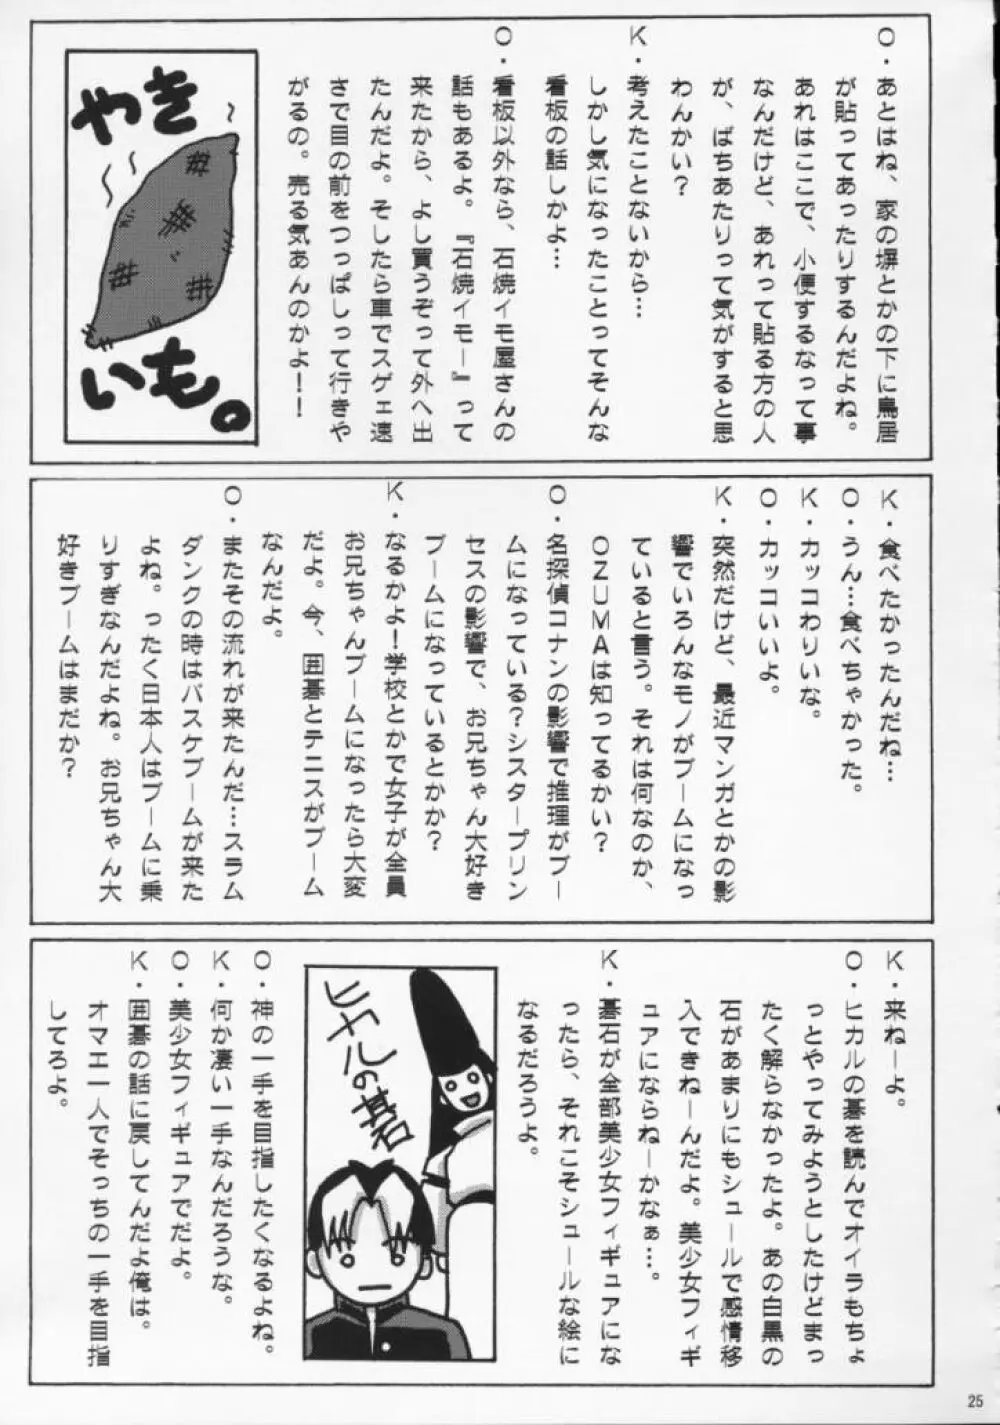 O・あとはね、家の塀とかの下に鳥居
が貼ってあったりするんだよね。
あれはここで、小便するなって事
なんだけど、あれって貼る方の人
が、ばちあたりって気がすると思
わんかい？
K・考えたことないから…
しかし気になったことってそんな
看板の話しかよ…
O・看板以外なら、石焼イモ屋さんの
話もあるよ。『石焼イモー』って
来たから、よし買うぞって外へ出
たんだよ。そしたら車でスゲェ速
さで目の前をつっぱしって行きや
がるの。売る気あんのかよ！！
やき
いも。
K・食べたかったんだね…
O・うん…食べちゃかった。
K・カッコわりいな。
O・カッコいいよ。
K・突然だけど、最近マンガとかの影
響でいろんなモノがブームになっ
ていると言う。それは何なのか、
OZUMAは知ってるかい？
O・名探偵コナンの影響で推理がブー
ムになっている？シスタープリン
セスの影響で、お兄ちゃん大好き
ブームになっているとかか？
K・なるかよ！学校とかで女子が全員
お兄ちゃんブームになったら大変
だよ。今、囲碁とテニスがブーム
なんだよ。
O・またその流れが来たんだ…スラム
ダンクの時はバスケブームが来た
よね。ったく日本人はブームに乗
りすぎなんだよね。お兄ちゃん大
好きブームはまだか？
K・来ねーよ。
O・ヒカルの碁を読んでオイラもちょ
っとやってみようとしたけどまっ
たく解らなかったよ。あの白黒の
石があまりにもシュールで感情移
入できねーんだよ。美少女フィギ
ュアにならねーかなぁ…。
K・碁石が全部美少女フィギュアにな
ったら、それこそシュールな絵に
なるだろうよ。
ヒカルの碁
O・神の一手を目指したくなるよね。
K・何か凄い一手なんだろうな。
O・美少女フィギュアでだよ。
K・囲碁の話に戻してんだよ俺は。
オマエ一人でそっちの一手を目指
してろよ。
25